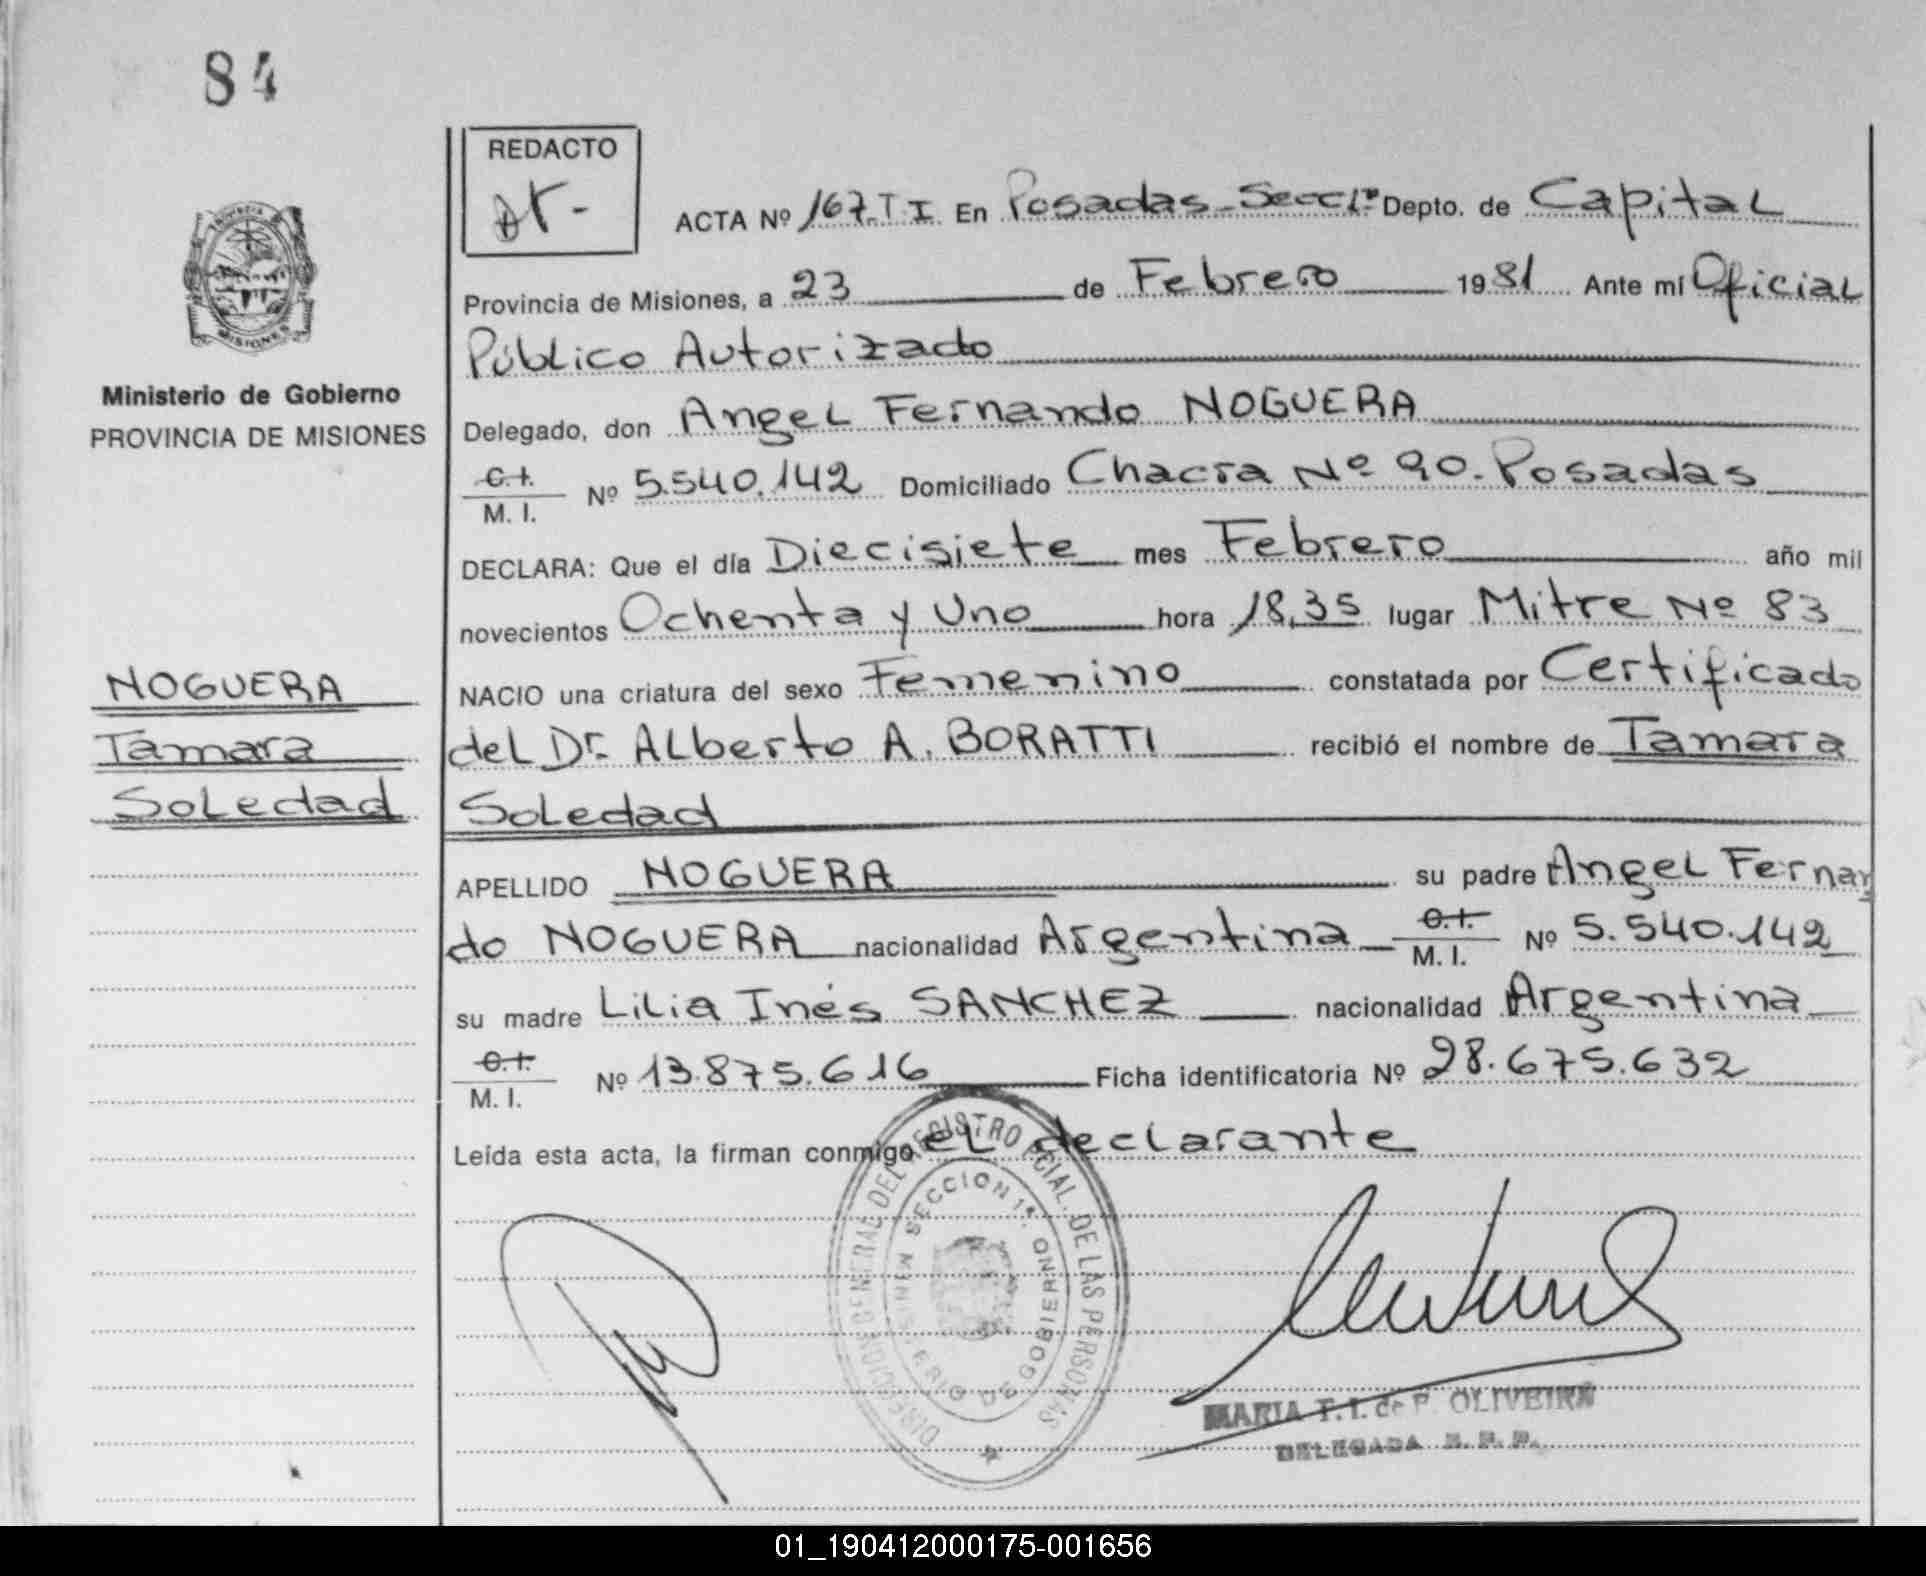 84
REDACTO
ACTA Nº 167.T.I En Posadas-Secc1ª Depto. de Capital
Provincia de Misiones, a 23 de Febrero 1981 Ante mí Oficial
Público Autorizado
Ministerio de Gobierno
PROVINCIA DE MISIONES
MISIONES
Delegado, don Angel Fernando NOGUERA
C.I.
M. I. Nº 5.540.142 Domiciliado Chacra Nº 90. Posadas
DECLARA: Que el día Diecisiete mes Febrero año mil
novecientos Ochenta y Uno hora 18,35 lugar Mitre Nº 83
NOGUERA
Tamara
Soledad
NACIO una criatura del sexo Femenino constatada por Certificado
del Dr. Alberto A. BORATTI recibió el nombre de Tamara
Soledad
APELLIDO NOGUERA su padre Angel Fernan
do NOGUERA nacionalidad Argentina C.I.
M. I. Nº 5.540.142
su madre Lilia Inés SANCHEZ nacionalidad Argentina
C.I.
M. I. Nº 13.875.616 Ficha identificatoria Nº 28.675.632
Leída esta acta, la firman conmigo el declarante
DIRECCION GENERAL DEL REGISTRO DE LAS PERSONAS
SECCION 1ª.
MINISTERIO DE GOBIERNO
MARIA T. I. de P. OLIVEIRA
DELEGADA
01_190412000175-001656